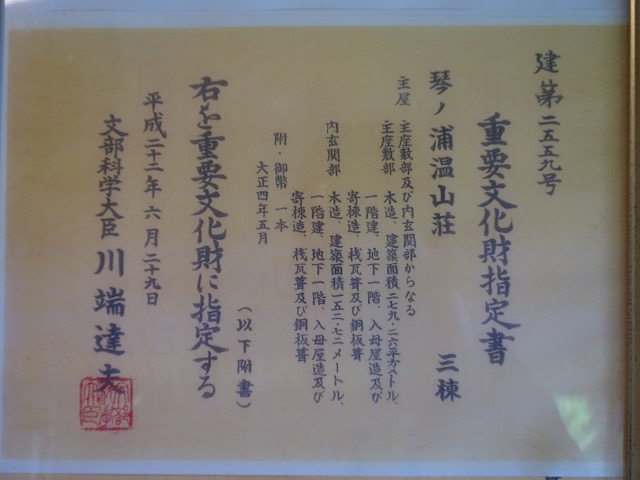 建第二五五九号
重要文化財指定書
琴ノ浦温山荘 三棟
主屋 主座敷部及び内玄関部からなる
主座敷部 木造、建築面積二七九・二六平方メートル、
一階建、地下一階、入母屋造及び
寄棟造、桟瓦葺及び銅板葺
内玄関部 木造、建築面積一五二・七二メートル、
一階建、地下一階、入母屋造及び
寄棟造、桟瓦葺及び銅板葺
附・御幣 一本
大正四年五月
(以下附書)
右を重要文化財に指定する
平成二十二年六月二十九日
文部科学大臣 川端達夫